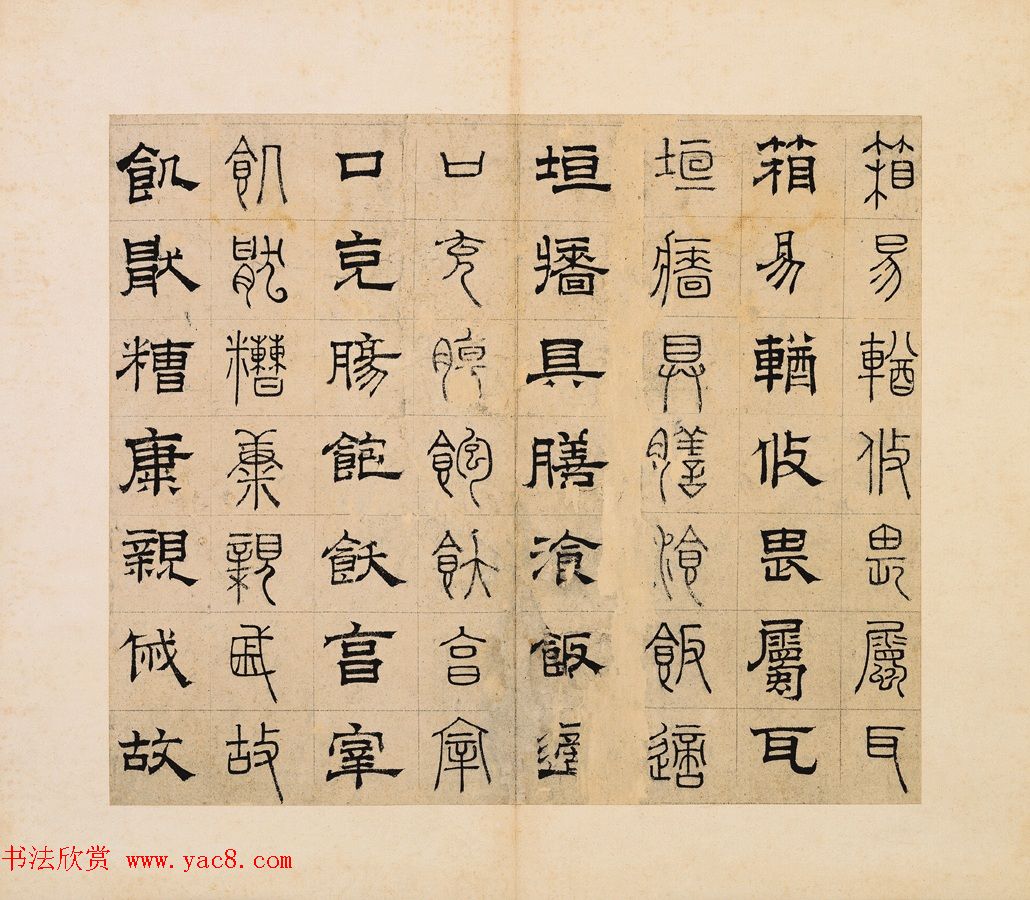 箱易輶攸畏屬耳
箱易輶攸畏屬耳
垣牆具膳飡飯適
垣牆具膳飡飯適
口充腸飽飫享宰
口充腸飽飫享宰
飢猒糟糠親戚故
飢猒糟糠親戚故
书法欣赏 www.yac8.com